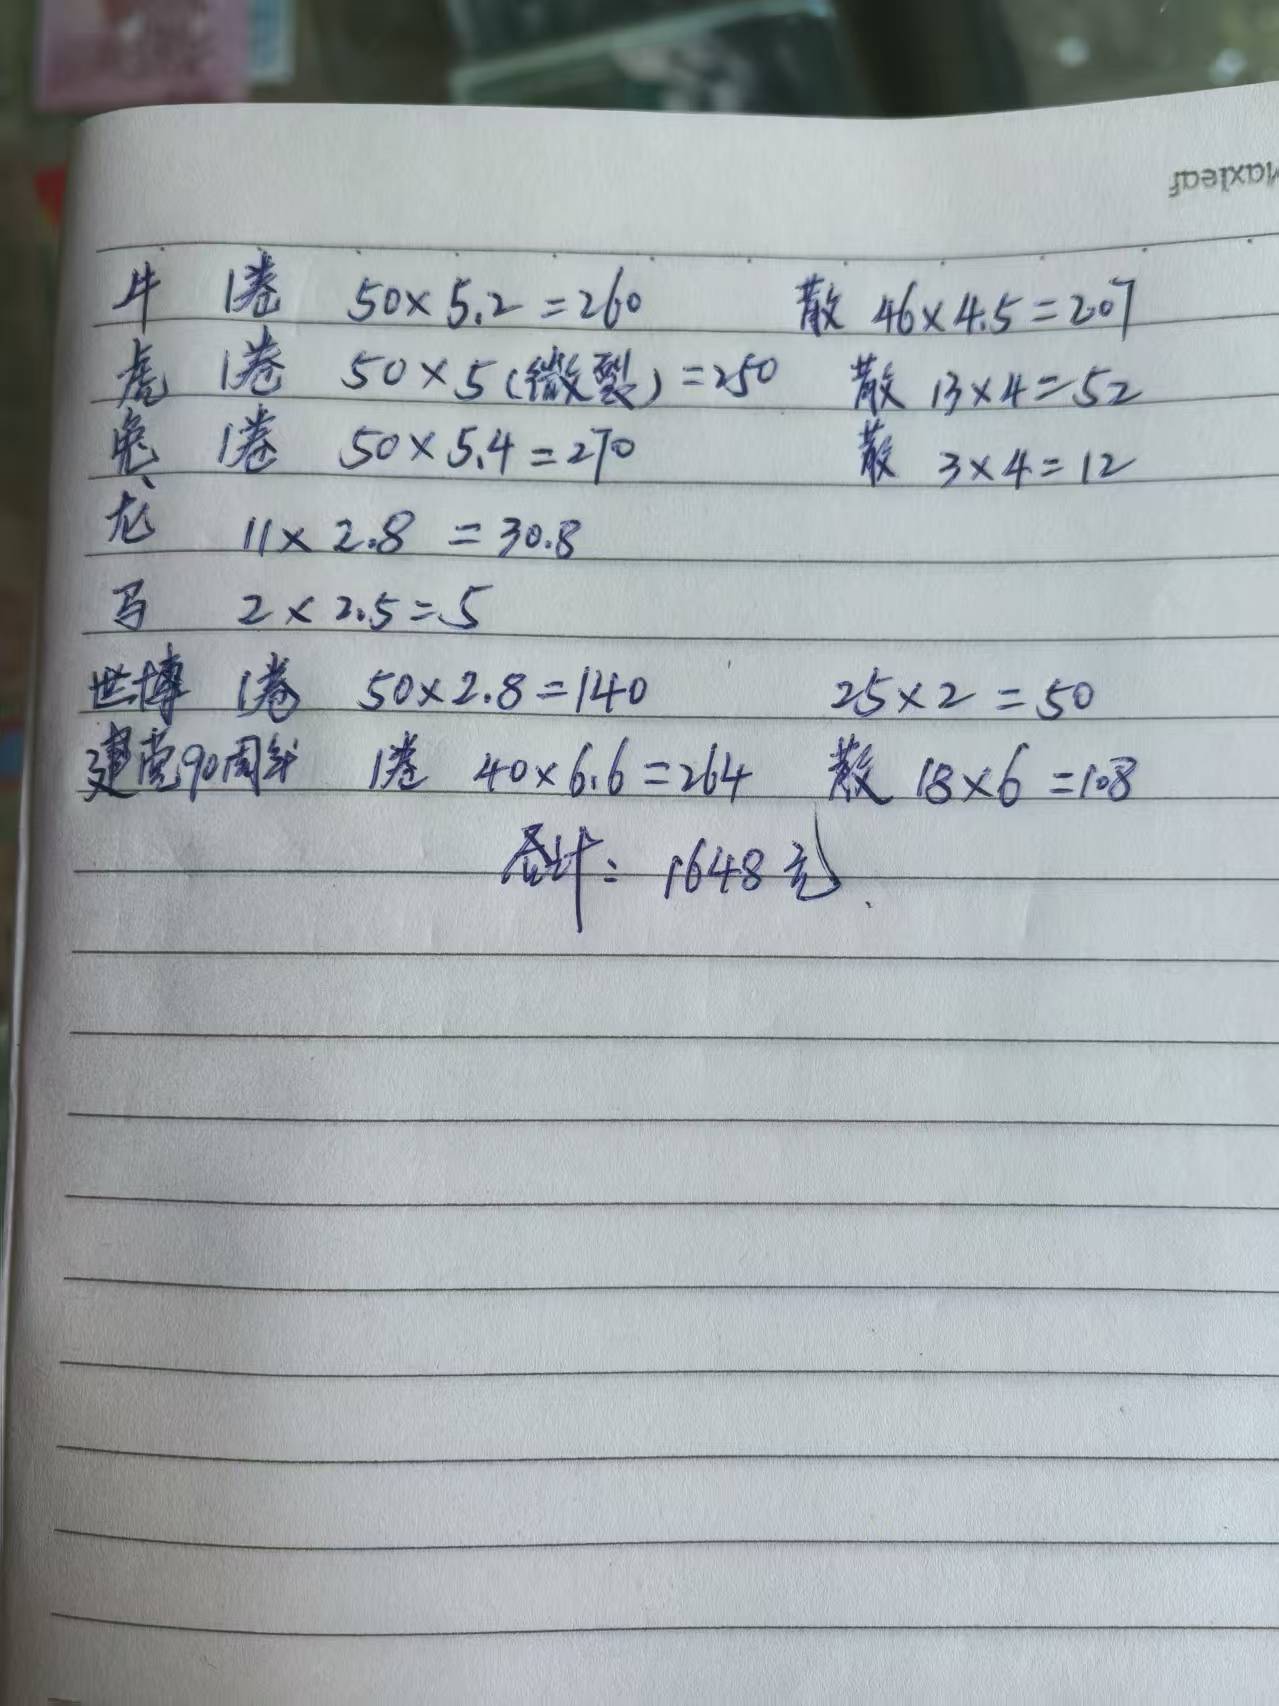 Maxleaf
牛 1卷 50×5.2=260 散 46×4.5=207
虎 1卷 50×5(微裂)=250 散 13×4=52
兔 1卷 50×5.4=270 散 3×4=12
龙 11×2.8=30.8
马 2×2.5=5
世博 1卷 50×2.8=140 25×2=50
建党90周年 1卷 40×6.6=264 散 18×6=108
合计: 1648元.